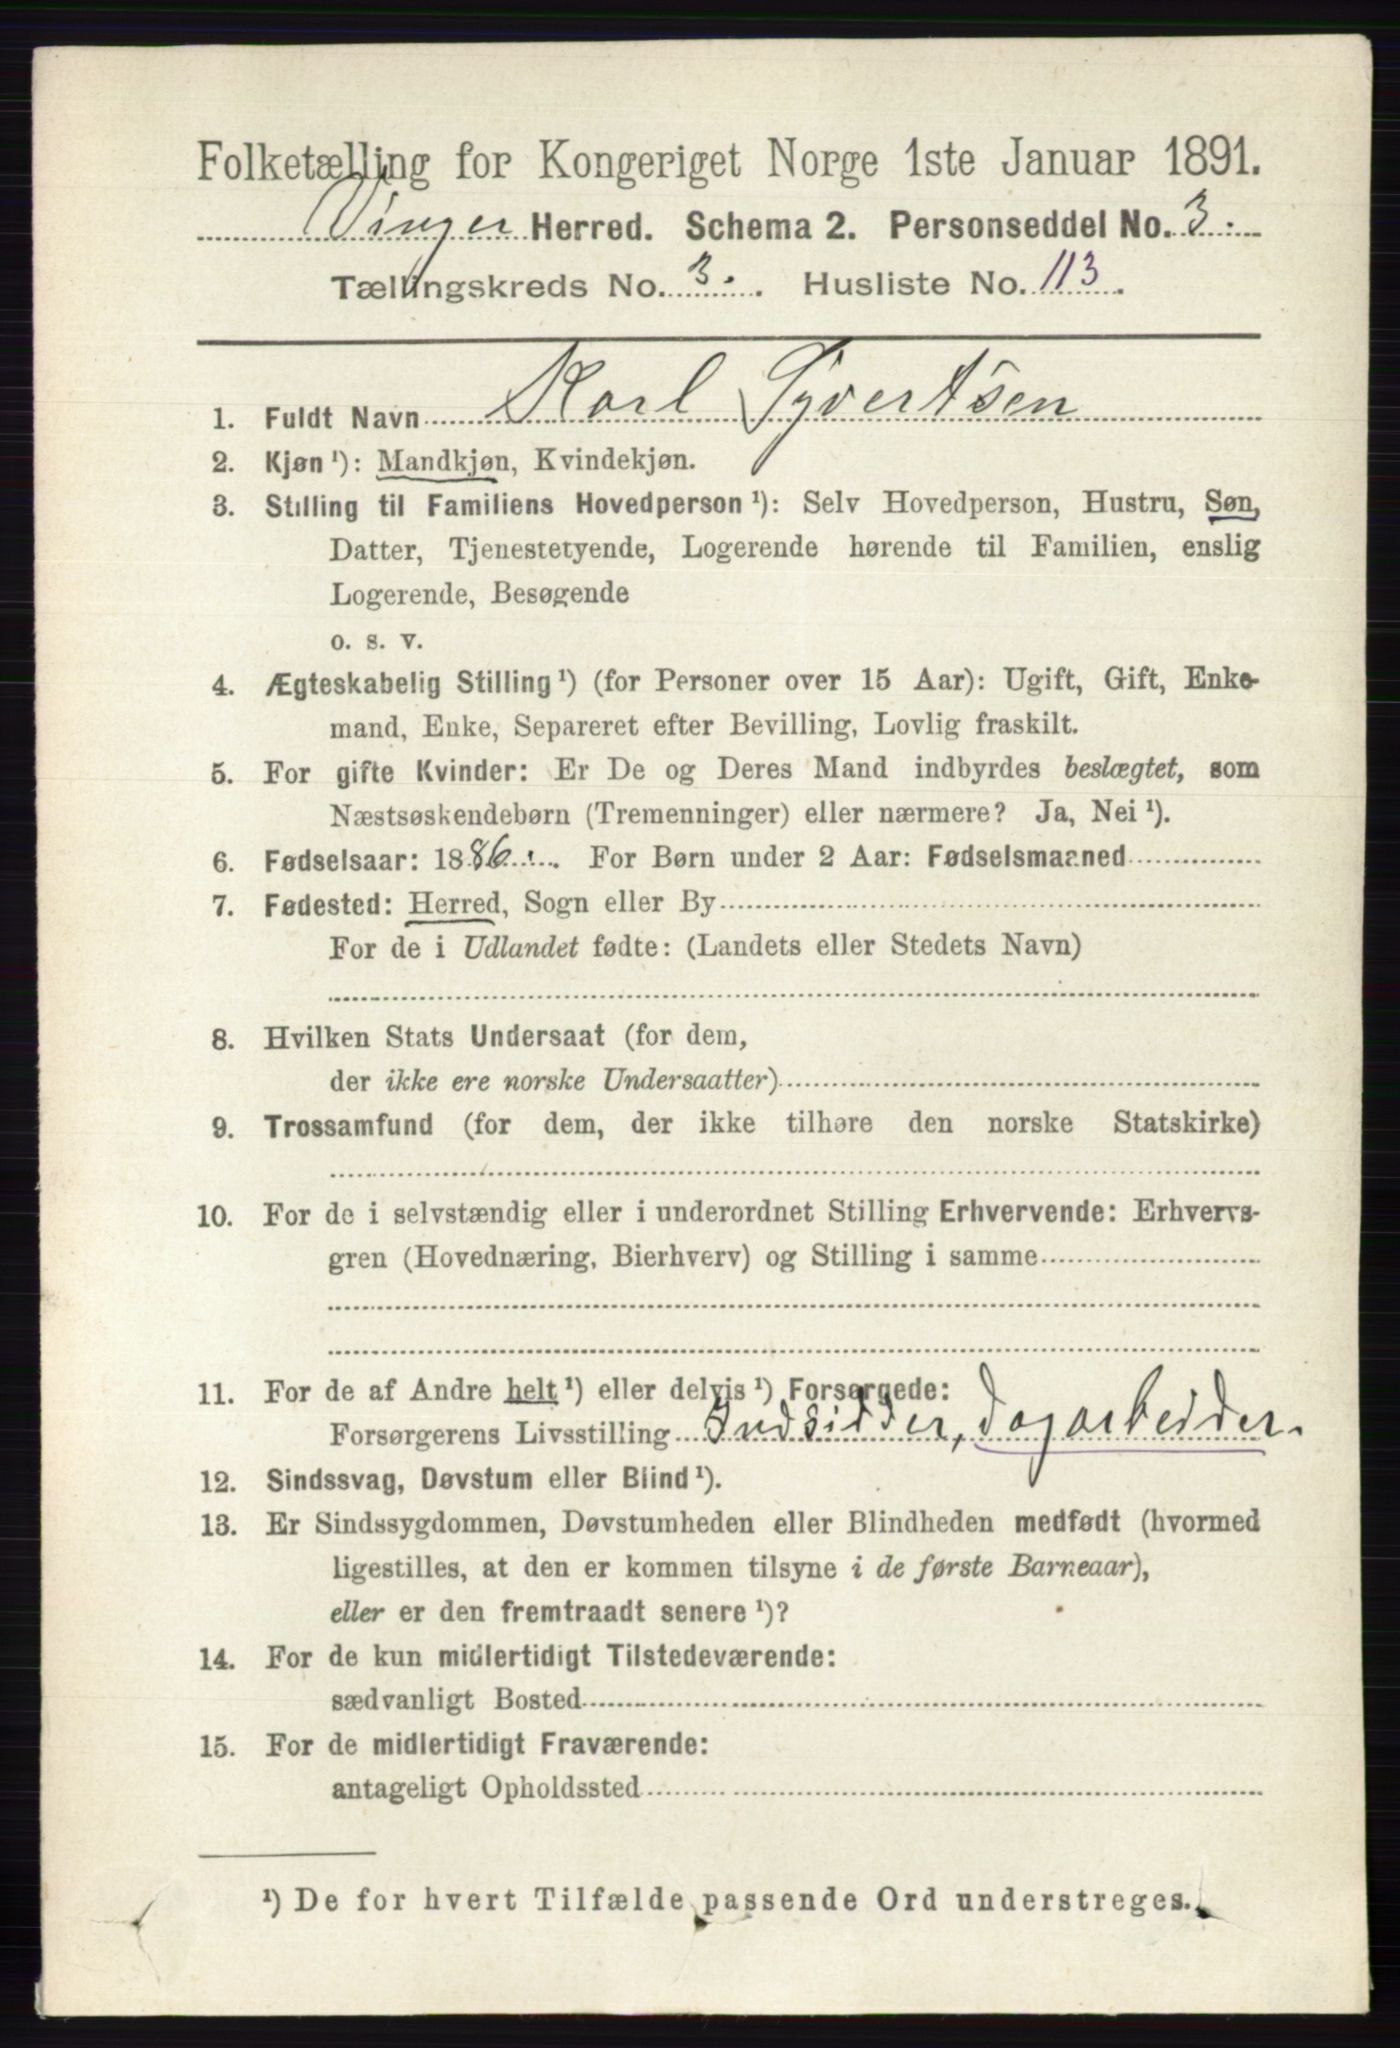 Folketælling for Kongeriget Norge 1ste Januar 1891.
Vinger Herred. Schema 2. Personseddel No. 3.
Tællingskreds No. 3. Husliste No. 113.
1. Fuldt Navn Karl Syvertsen
2. Kjøn ¹): Mandkjøn, Kvindekjøn.
3. Stilling til Familiens Hovedperson ¹): Selv Hovedperson, Hustru, Søn,
Datter, Tjenestetyende, Logerende hørende til Familien, enslig
Logerende, Besøgende
o. s. v.
4. Ægteskabelig Stilling ¹) (for Personer over 15 Aar): Ugift, Gift, Enke-
mand, Enke, Separeret efter Bevilling, Lovlig fraskilt.
5. For gifte Kvinder: Er De og Deres Mand indbyrdes beslægtet, som
Næstsøskendebørn (Tremenninger) eller nærmere? Ja, Nei ¹).
6. Fødselsaar: 1886. For Børn under 2 Aar: Fødselsmaaned
7. Fødested: Herred, Sogn eller By
For de i Udlandet fødte: (Landets eller Stedets Navn)
8. Hvilken Stats Undersaat (for dem,
der ikke ere norske Undersaatter)
9. Trossamfund (for dem, der ikke tilhøre den norske Statskirke)
10. For de i selvstændig eller i underordnet Stilling Erhvervende: Erhvervs-
gren (Hovednæring, Bierhverv) og Stilling i samme
11. For de af Andre helt ¹) eller delvis ¹) Forsørgede:
Forsørgerens Livsstilling Indsidder, dagarbeider.
12. Sindssvag, Døvstum eller Blind ¹).
13. Er Sindssygdommen, Døvstumheden eller Blindheden medfødt (hvormed
ligestilles, at den er kommen tilsyne i de første Barneaar),
eller er den fremtraadt senere ¹)?
14. For de kun midlertidigt Tilstedeværende:
sædvanligt Bosted
15. For de midlertidigt Fraværende:
antageligt Opholdssted
¹) De for hvert Tilfælde passende Ord understreges.